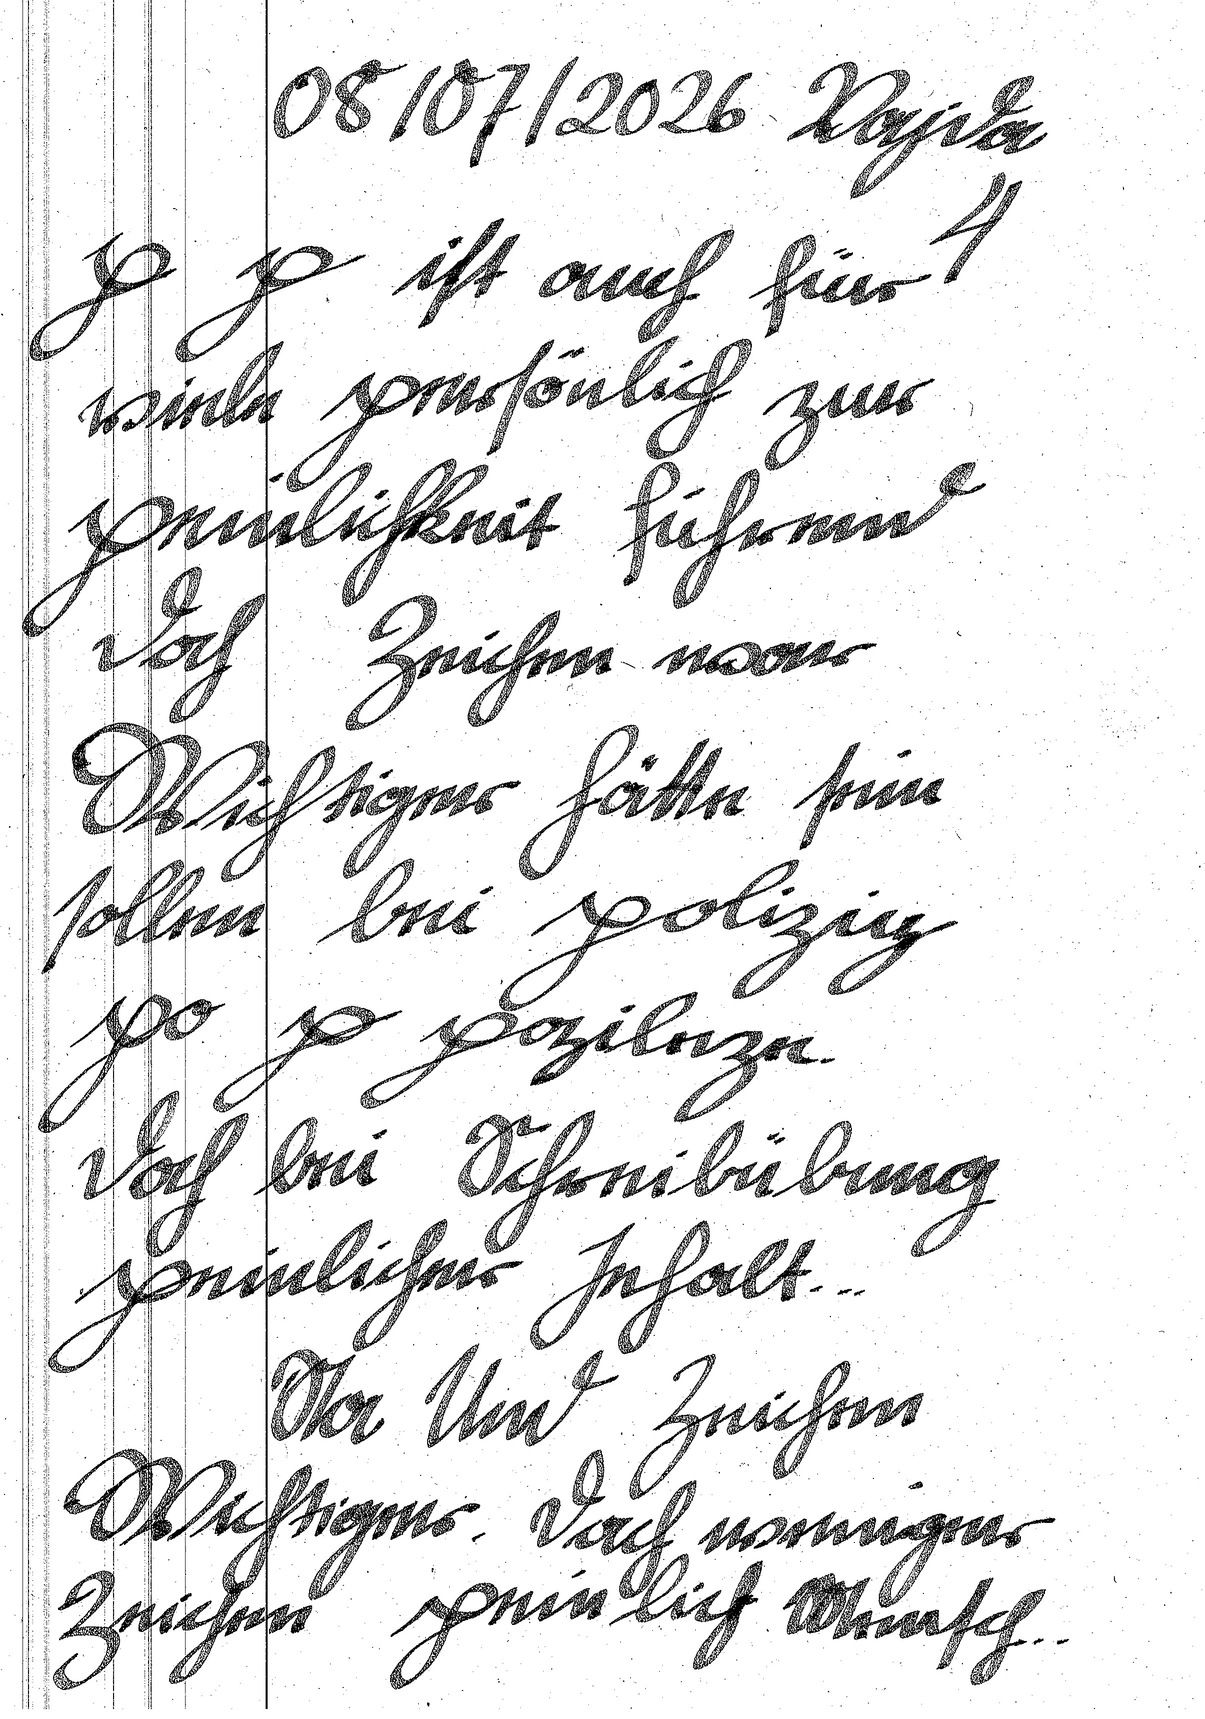 08/07/2026 Vajda
4
p p ist auch für
viele persönlich zur
peinlichkeit führend
doch Zeichen war
Wichtiger hätte sein
sollen bei polizig
po p pozileze.
doch bei Schreibübung
peinlicher Inhalt...
Na Und Zeichen
Wichtiger. doch weniger
Zeichen peinlich Mensch...